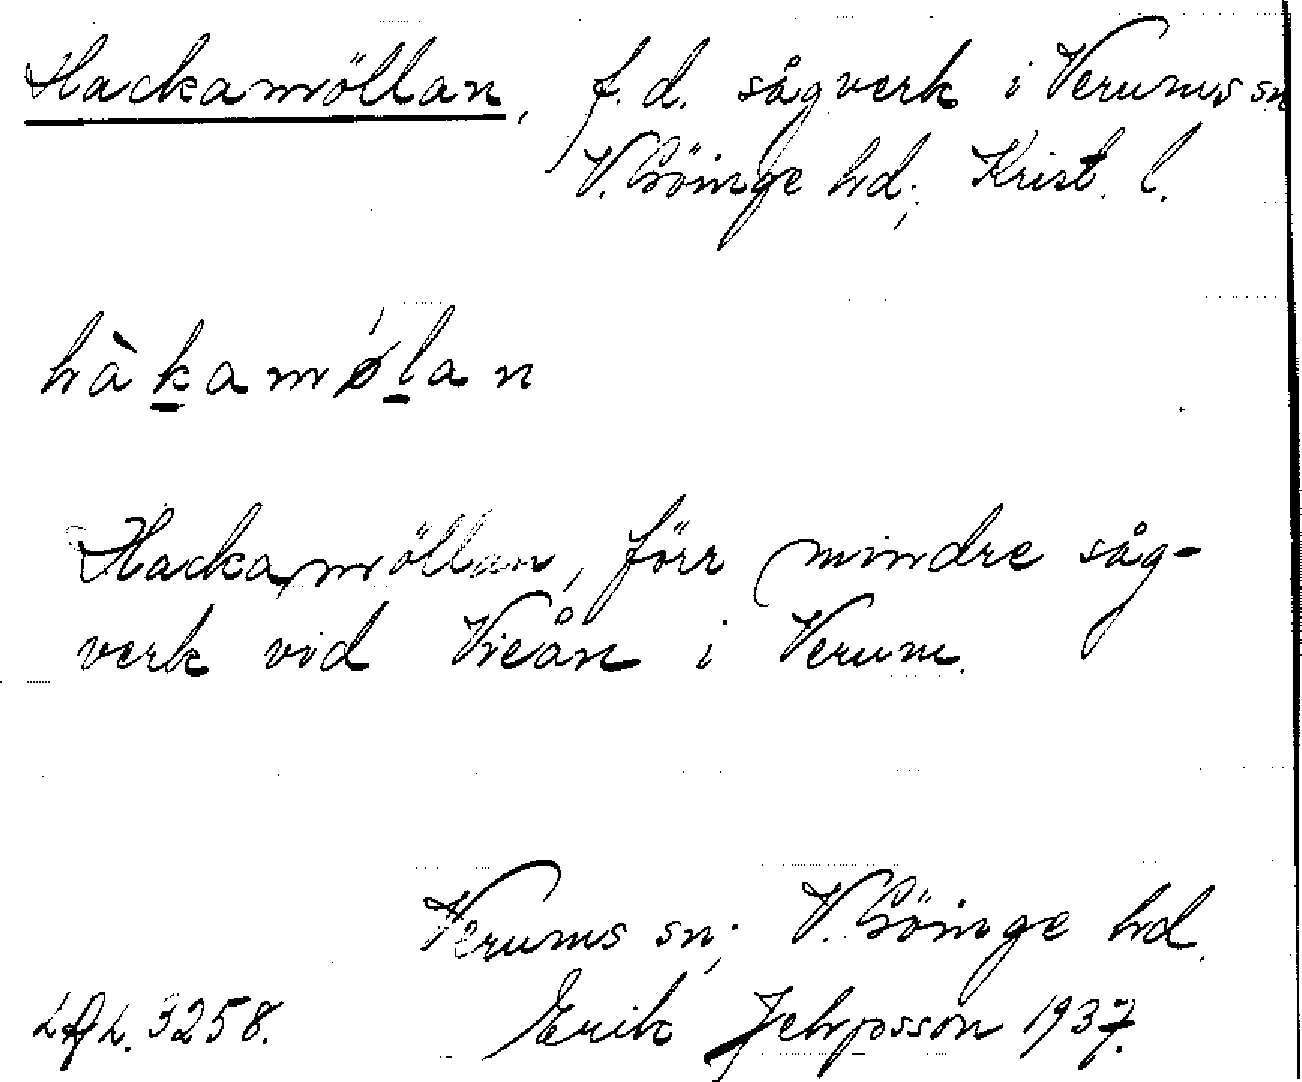 Hackamöllan, f.d. sågverk i Verums sn
V. Göinge hd; Krist. l.
hàkamø̍lan
Hackamöllan, förr mindre såg-
verk vid Vieån i Verum.
Verums sn; V. Göinge hd.
3258. Erik Jehrpsson 1937.